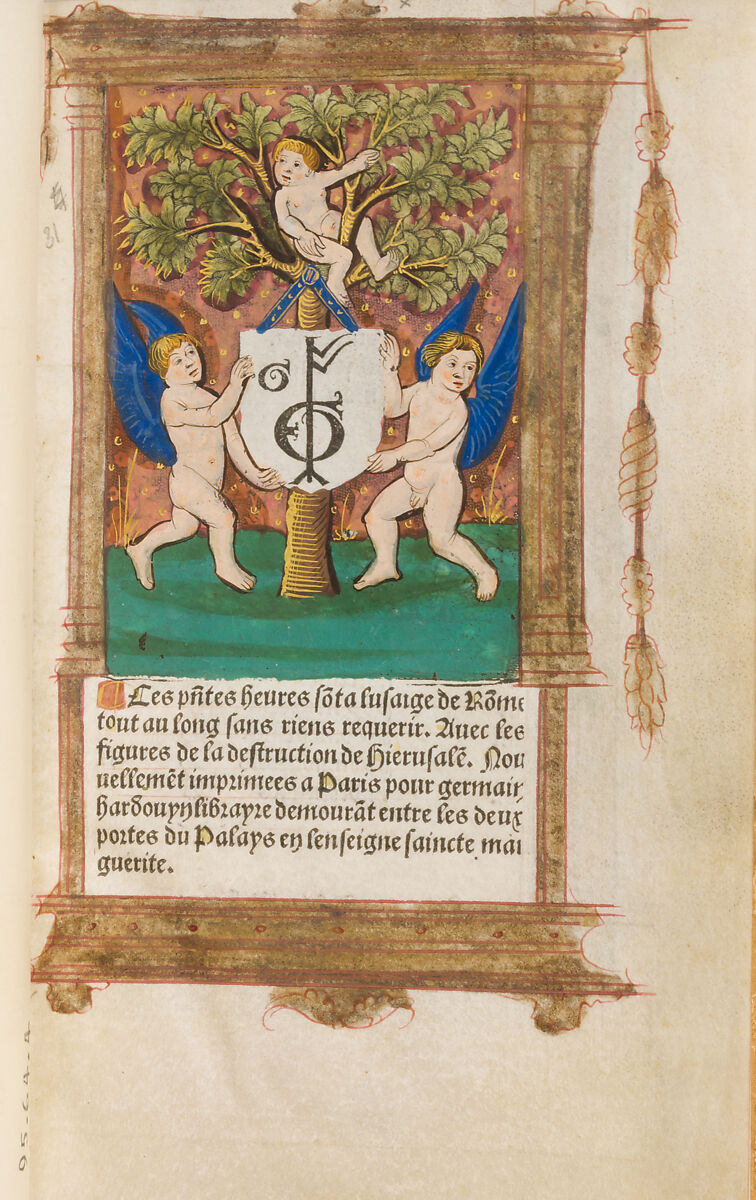 Ces pn̄tes heures sōt a lusaige de Rōme
tout au long sans riens requerir. Auec les
figures de la destruction de Hierusalē. Nou
uellemēt imprimees a Paris pour germain
hardouyn librayre demourāt entre les deux
portes du Palays en lenseigne saincte mar
guerite.
31
95.64.4